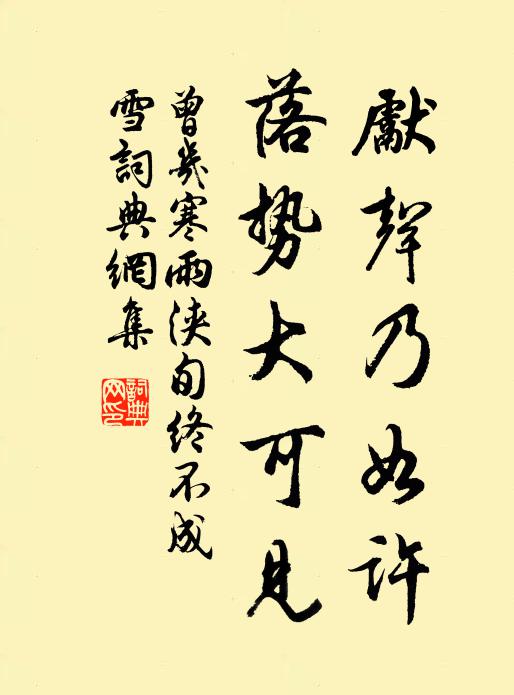 獻聲乃如許
落势大可見
曾幾寒雨浹旬終不成
雪詞典網集
詞典
网印